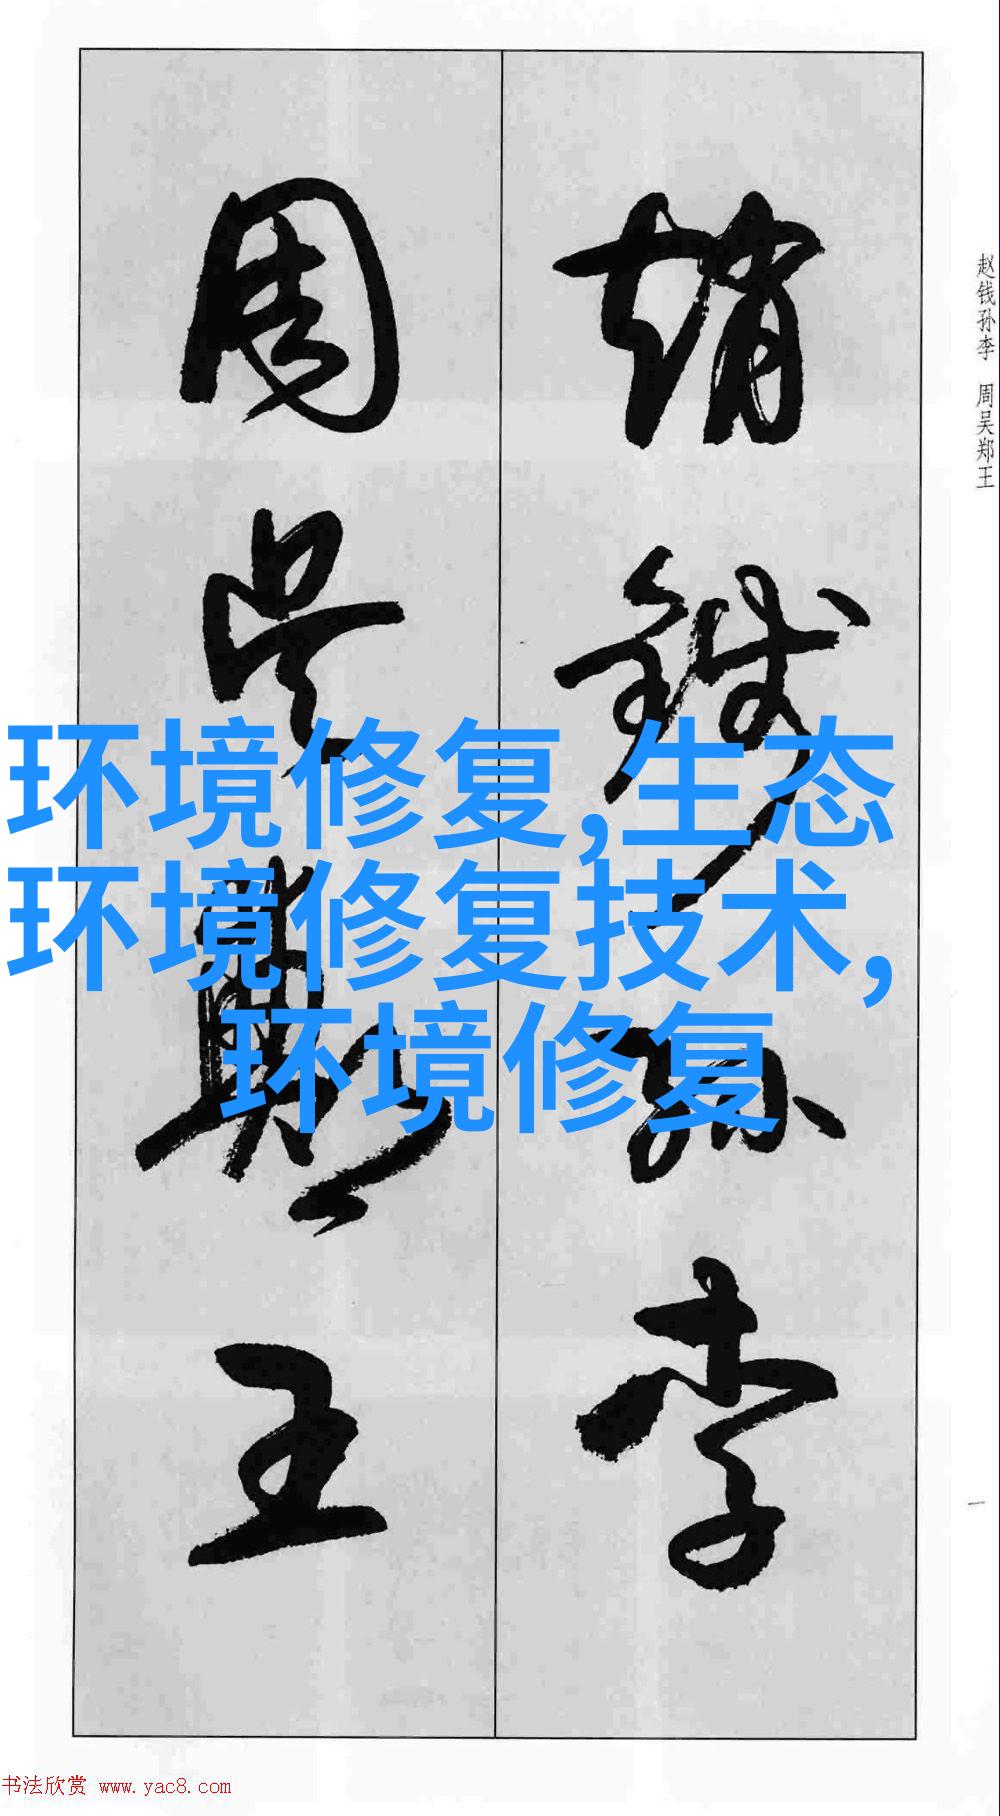 赵钱孙李 周吴郑王
趙錢孫李
周吴鄭王
环境修复,生态
环境修复技术,
环境修复
一
书法欣赏 www.yac8.com